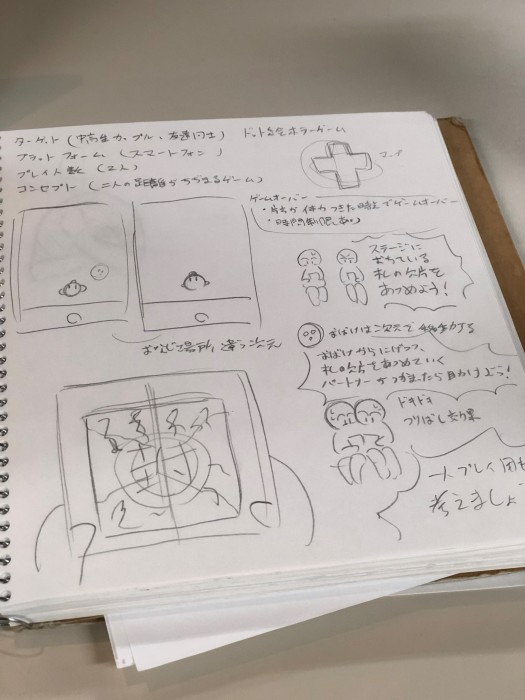 ターゲット（中高生カップル、友達同士）　ドット絵ホラーゲーム
プラットフォーム（スマートフォン）
プレイ人数（2人）
コンセプト（二人の距離がちぢまるゲーム）
ゲームオーバー
・片方が体力つきた時点でゲームオーバー
・時間制限あり
ステージに
おちている
札の欠片を
あつめよう！
おなじ場所 違う次元
おばけは二次元で
おばけからにげつつ、
札の欠片をあつめていく
パートナーがつかまったら助けよう！
ドキドキ
つりばし効果
一人プレイ用も
考えましょ